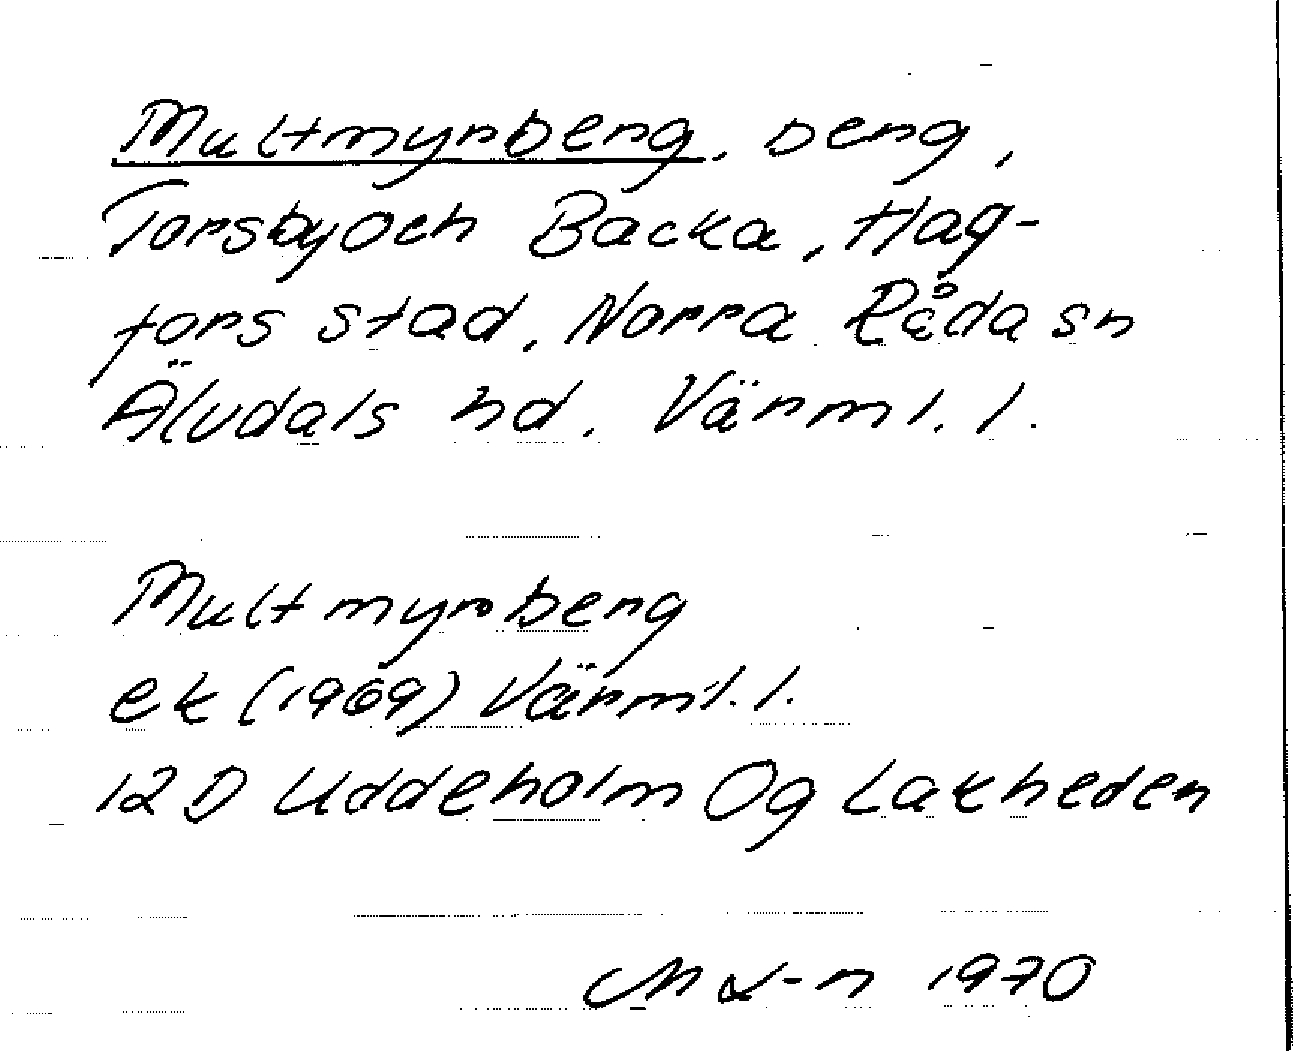 Multmyrberg, berg,
Torsby och Backa, Hag-
fors stad, Norra Råda sn
Älvdals hd. Värml. l.
Multmyrberg
ek (1969) Värml. l.
12 D Uddeholm Og Lakheden
1970